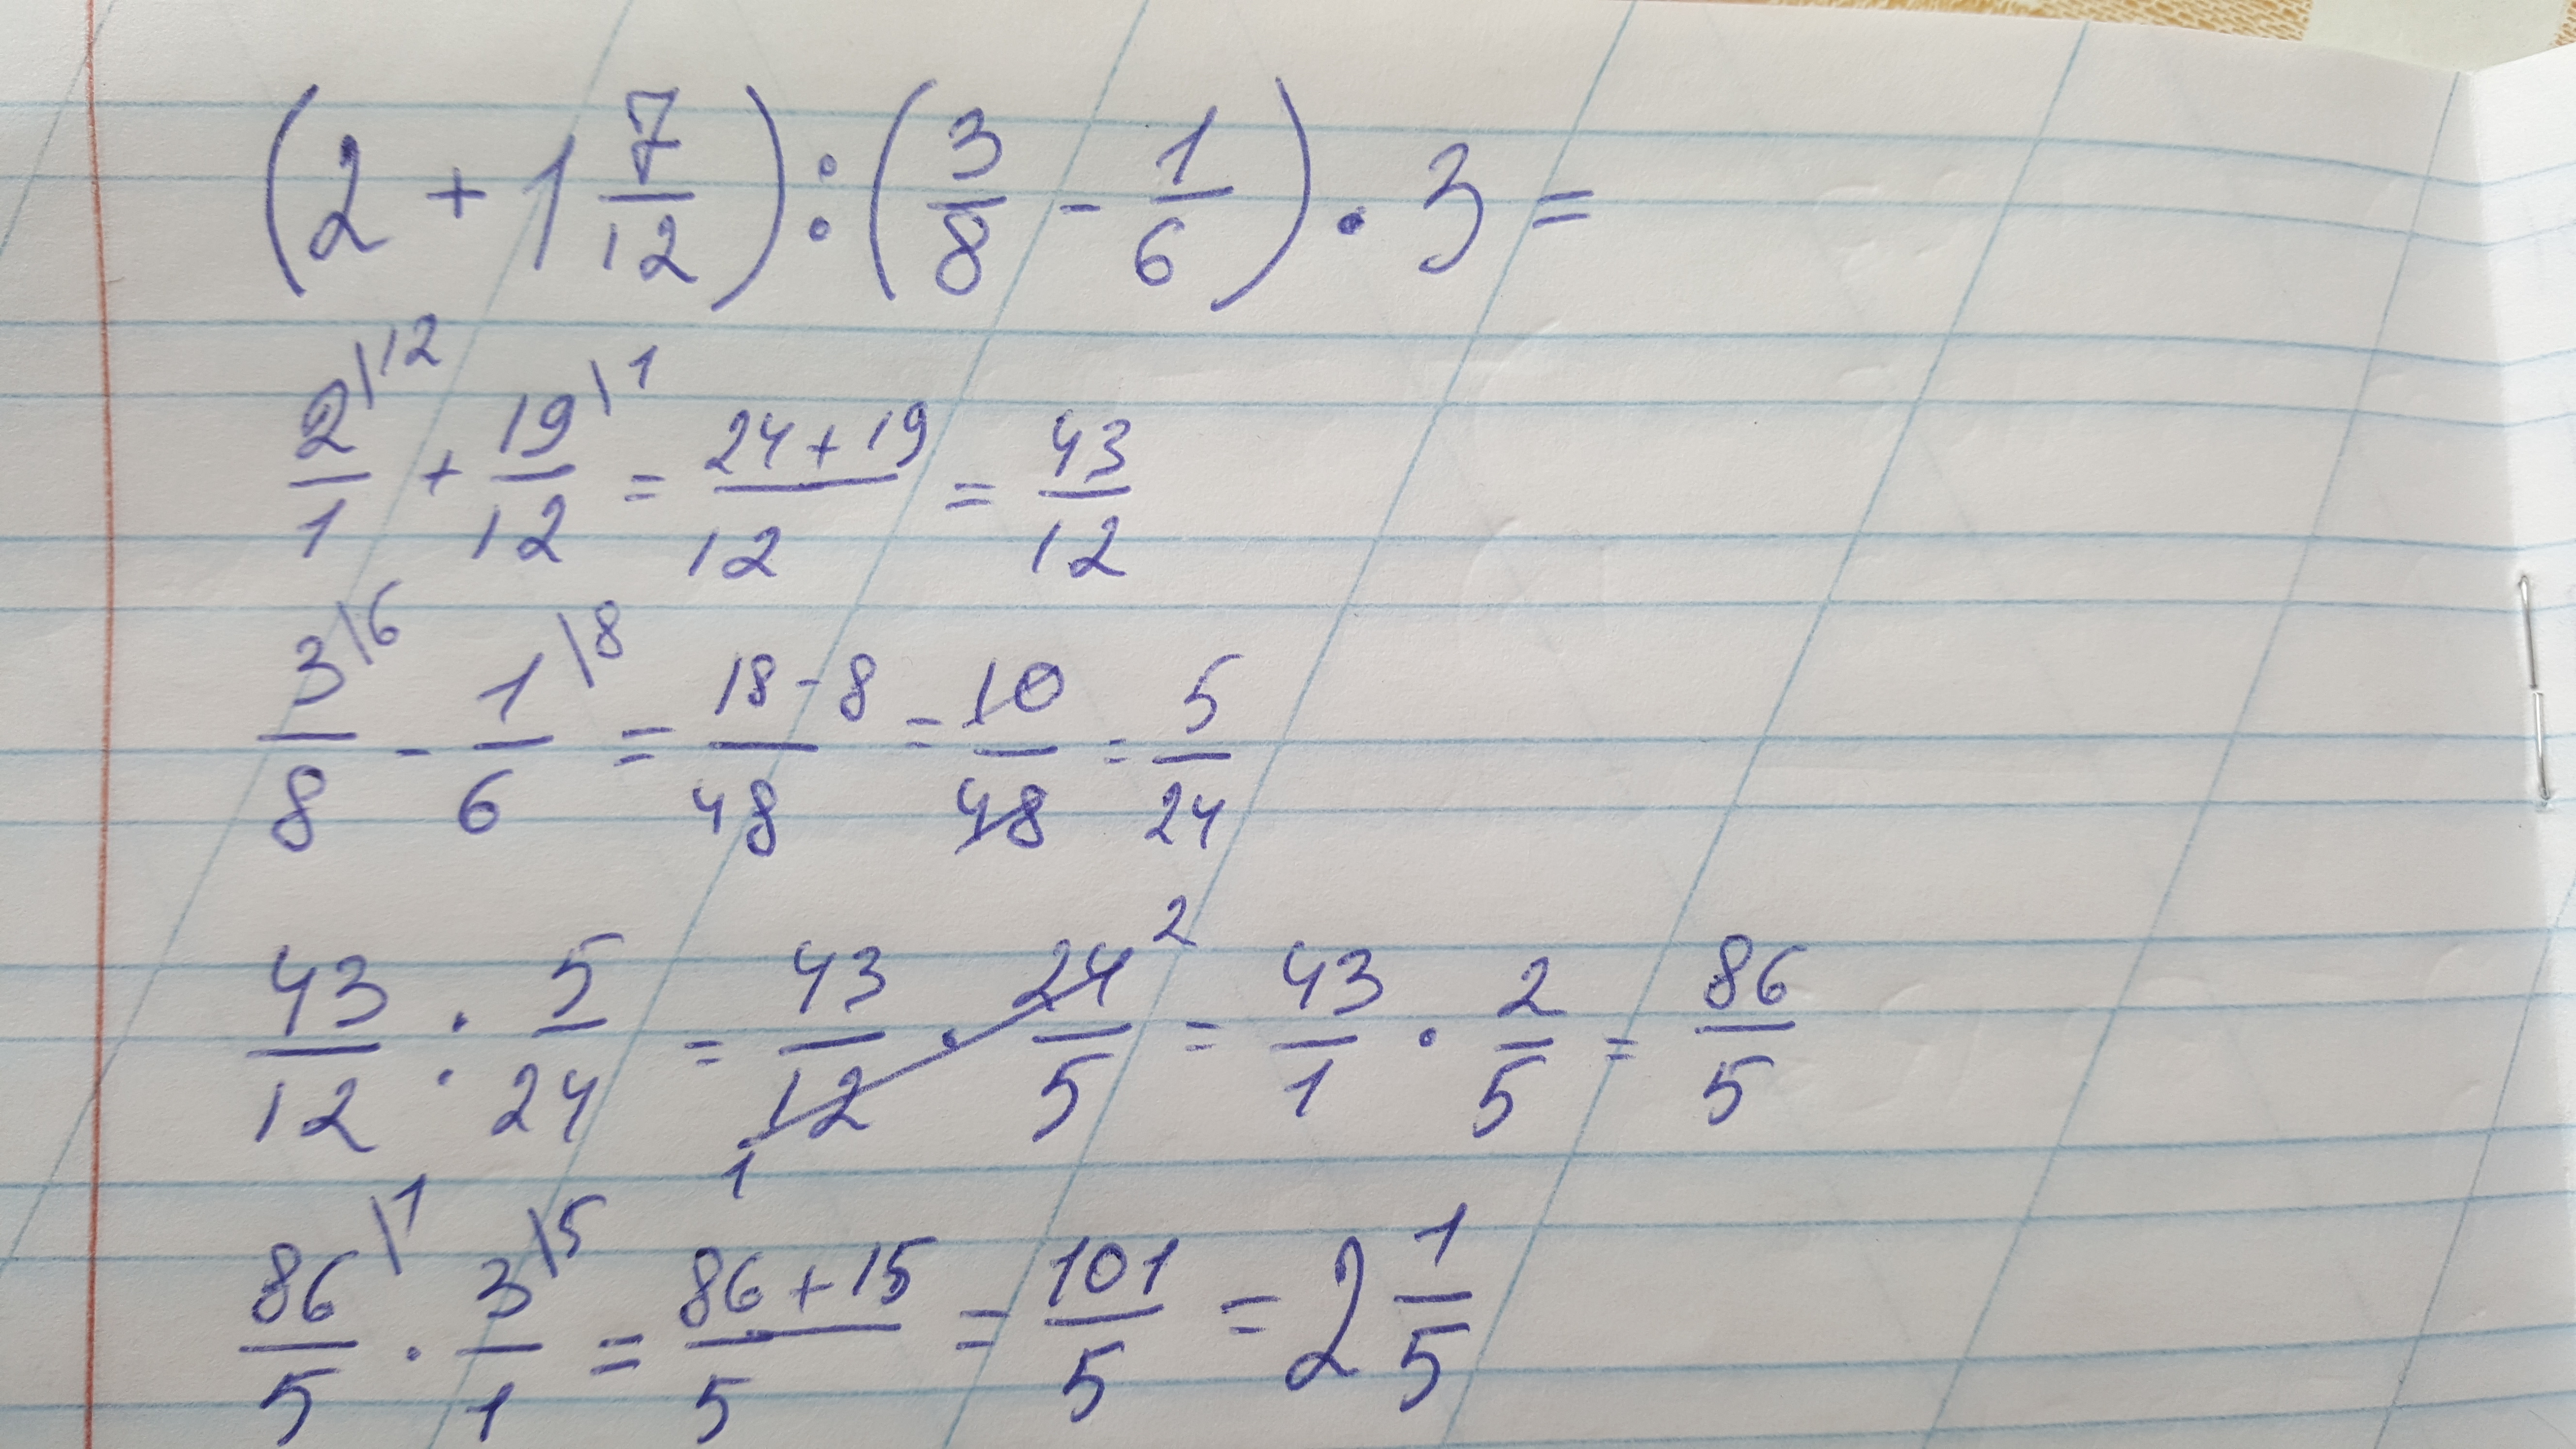 (2 + 1 7/12) : (3/8 - 1/6) · 3 =
2\12/1 + 19\1/12 = 24+19/12 = 43/12
3\6/8 - 1\8/6 = 18-8/48 = 10/48 = 5/24
43/12 : 5/24 = 43/12 1 · 24 2/5 = 43/1 · 2/5 = 86/5
86\1/5 · 3\5/1 = 86+15/5 = 101/5 = 2 1/5